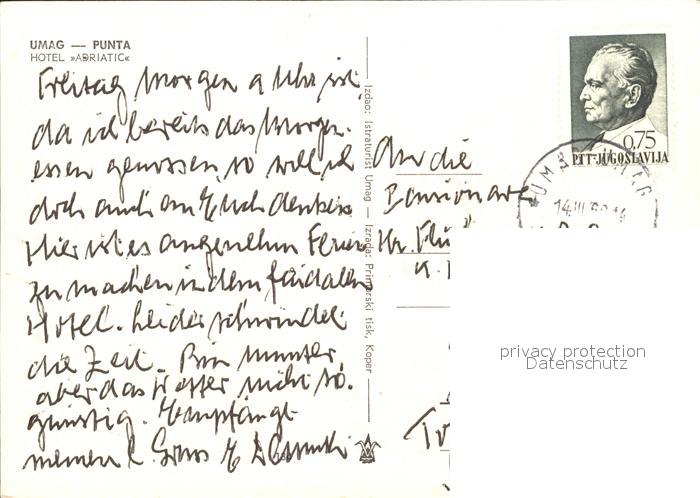 UMAG — PUNTA
HOTEL »ADRIATIC«
Freitag Morgen 9 Uhr ist
da ich bereits das Morgen-
essen genossen, so will ich
doch auch an Euch denken
Hier ist es angenehm Ferien
zu machen in dem feudalen
Hotel. Leider schwindet
die Zeit. Bin munter,
aber das Wetter nicht so
günstig. Empfängt
meinen l. Gruss
Izdao: Istraturist Umag — Izrada: Primorski tisk, Koper
An die
Pensionäre
Hr.
0,75
PTT-JUGOSLAVIJA
UMAG
privacy protection
Datenschutz